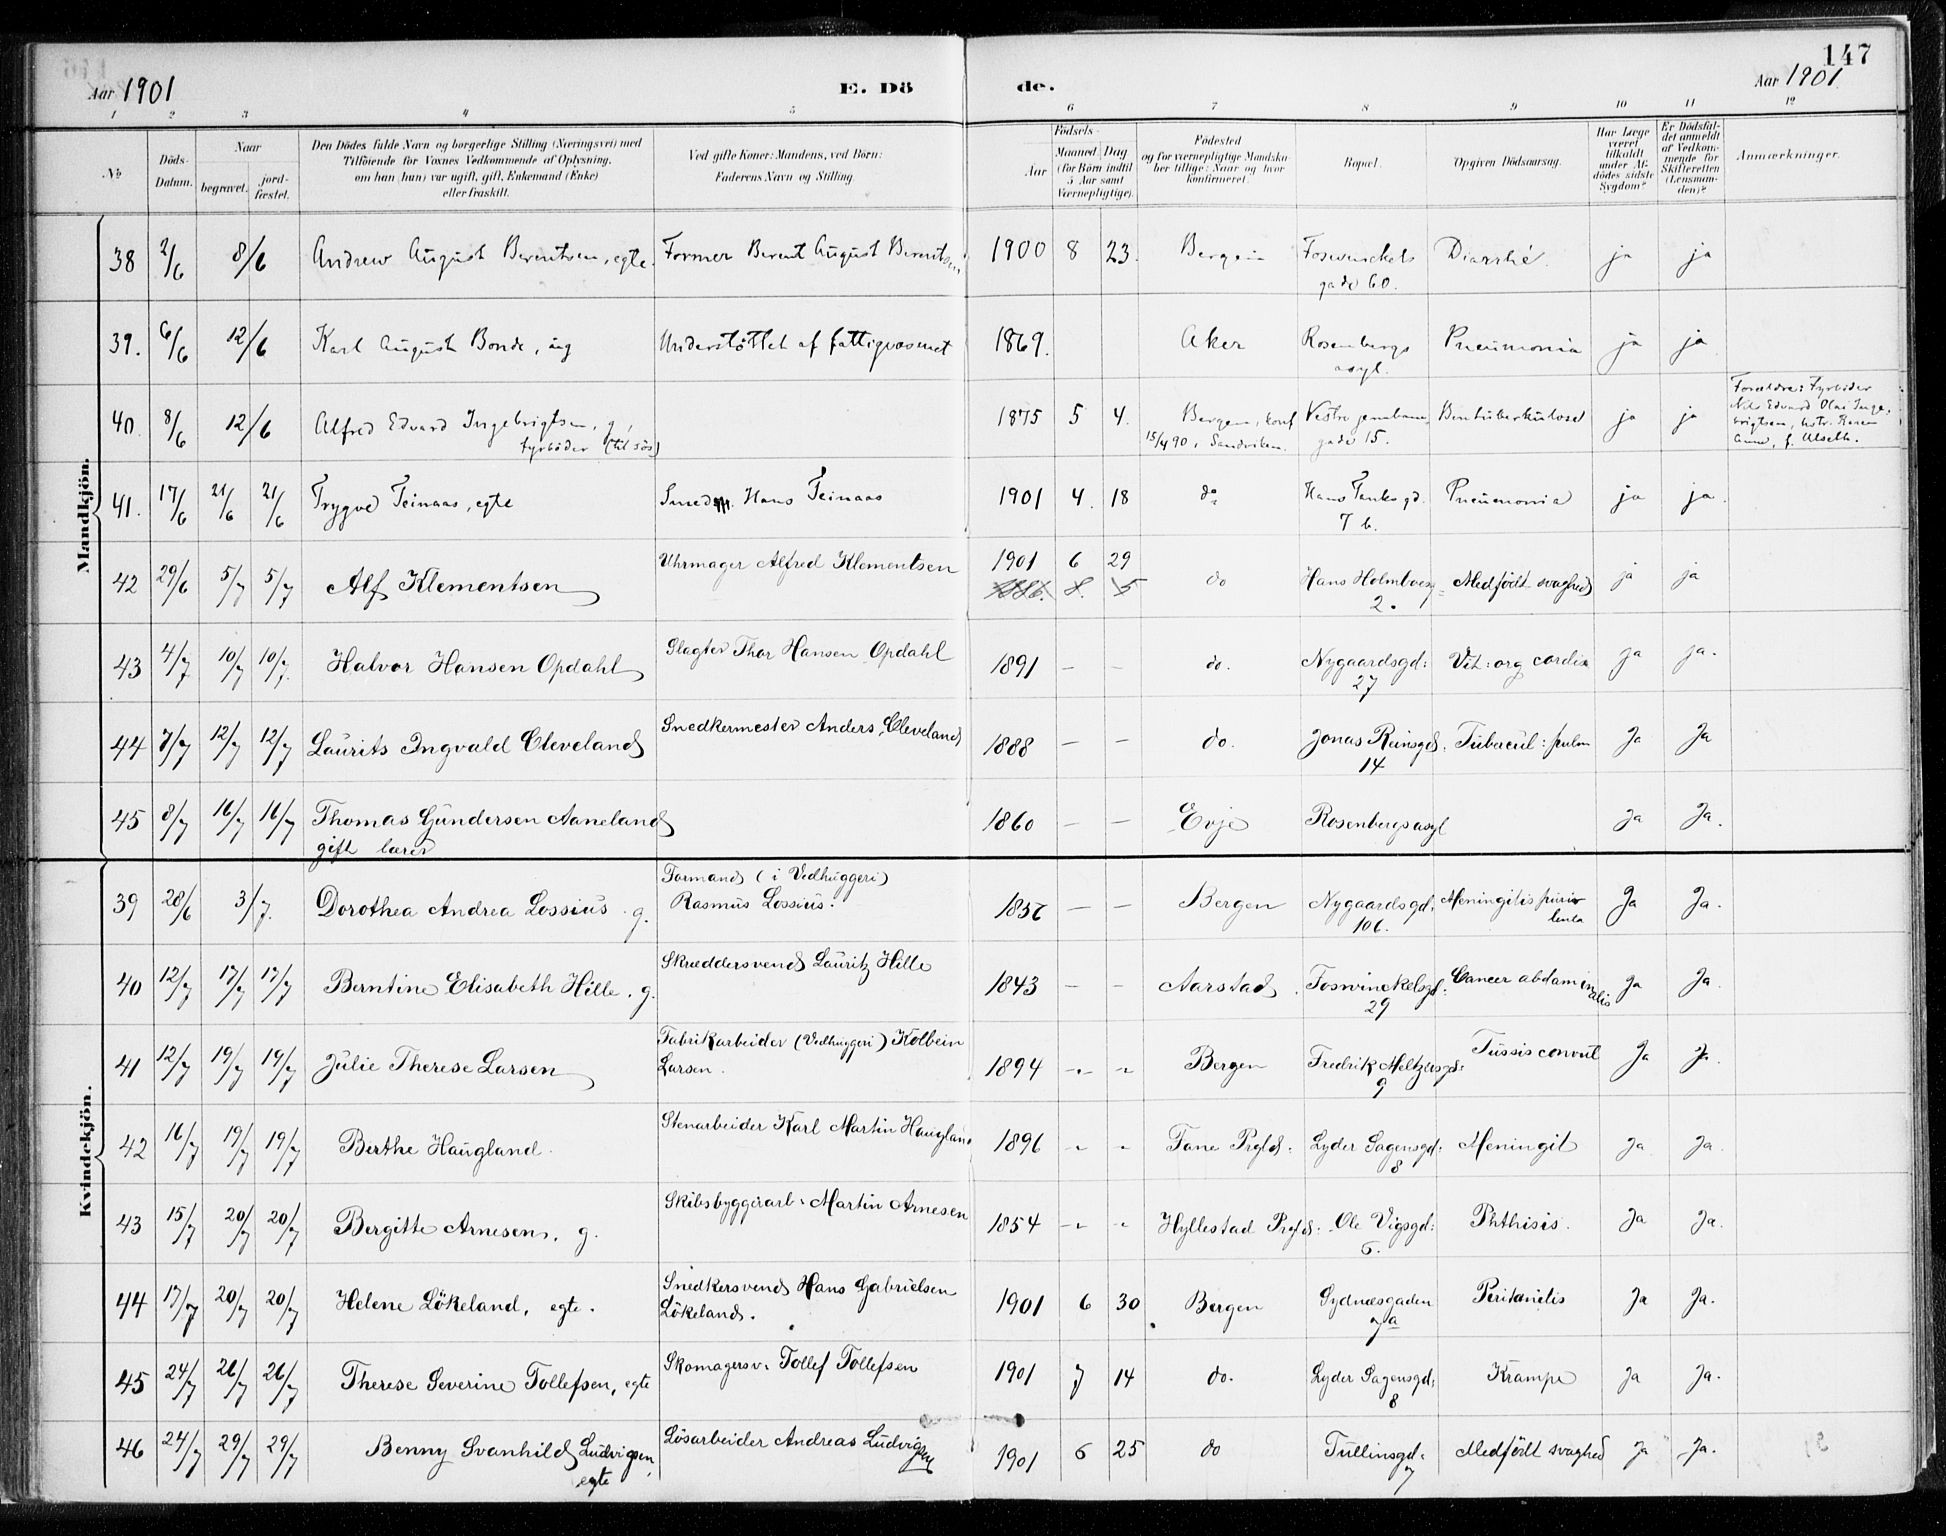 147
Aar 1901 E. Dö de. Aar 1901
1 2 3 4 5 6 7 8 9 10 11 12
№ Döds-Datum. Naar begravet. jord-fæstet. Den Dödes fulde Navn og borgerlige Stilling (Næringsvei) med Tilföiende for Voxnes Vedkommende af Oplysning, om han (hun) var ugift, gift, Enkemand (Enke) eller fraskilt. Ved gifte Koner: Mandens, ved Börn: Faderens Navn og Stilling Födsels- Aar Maaned Dag (for Börn indtil 5 Aar samt Værnepligtige). Födested og for værnepligtige Mandskaber tillige: Naar og hvor konfirmeret. Bopæl. Opgiven Dödsaarsag. Har Læge været tilkaldt under Afdödes sidste Sygdom? Er Dödsfaldet anmeldt af Vedkommende for Skifteretten (Lensmanden)? Anmærkninger.
Mandkjön.
38 2/6 8/6 Andrew August Berentsen, egte. Former Berent August Berentsen 1900 8 23. Bergen Foswinckels gade 60. Diarrhé. ja ja
39. 6/6 12/6 Karl August Bonde, ug Understöttet af fattigvæsenet 1869. Aker Rosenbergs asyl. Pneumonia ja ja
40. 8/6 12/6 Alfred Edvard Ingebrigtsen, g, fyrböder (til søs) 1875 5 4. Bergen, konf 15/4 90 i Sandviken. Vestre jernbane gade 15. Bentuberkulose ja ja Forældre: Fyrböder Nils Edvard Olai Ingebrigtsen, hstr. Karen Anne, f. Ulseth.
41. 17/6 21/6 21/6 Trygve Teinaas, egte Smed Hans Teinaas 1901 4. 18 do Hans Tanks gd. 7 b. Pneumonia ja ja.
42 29/6 5/7 5/7 Alf Klementsen Uhrmager Alfred Klementsen 1901 6 29 1886. 8. 5 do Hans Holmboesg 2. Medfödt svaghed ja ja
43 4/7 10/7 10/7. Halvor Hansen Opdahl Slagter Thor Hansen Opdahl 1891 — — do. Nygaardsgd: 27 Vit: org cordis ja ja.
44 7/7 12/7 12/7 Laurits Ingvald Cleveland Snedkermester Anders Cleveland 1888 — — do. Jonas Reinsgd. 14 Tubercul: pulm Ja Ja
45 8/7 16/7 16/7 Thomas Gundersen Aaneland gift lærer 1860 — — Evje Rosenbergsasyl Ja Ja.
Kvindekjön.
39 28/6 3/7. Dorothea Andrea Lossius. g. Formand (i Vedhuggeri) Rasmus Lossius. — — Bergen Nygaardsgd: 106. Meningitis puru lenta Ja Ja.
40 12/7 17/7 17/7 Berntine Elisabeth Hille. g. Skræddersvend Lauritz Hille 1843 — — Aarstad. Foswinckelsgd: 29 Cancer abdaminalis Ja Ja.
41 12/7 19/7 19/7 Julie Therese Larsen Fabrikarbeider (Vedhuggeri) Kolbein Larsen. 1894 „ „ Bergen Fredrik Meltzersgd: 9 Tussis convul Ja Ja.
42 16/7 19/7 19/7 Birthe Haugland. Stenarbeider Karl Martin Haugland 1896 „ „ Fane Prgld: Lyder Sagensgd: 8 Meningit Ja Ja.
43 15/7 20/7 20/7 Bergitte Arnesen, g. Skibsbyggerarb. Martin Arnesen 1854 „ „ Hyllestad Prgld: Ole Vigsgd: 6. Phthisis. Ja Ja.
44 17/7 20/7 20/7 Helene Lökeland, egte. Snedkersvend Hans Gabrielsen Lökeland. 1901 6 30 Bergen Sydnæsgaden 7a Peritonitis Ja Ja.
45 24/7 26/7 26/7 Therese Severine Tollefsen, egte Skomagersv. Tollef Tollefsen 1901 7 14 do. Lyder Sagensgd: 8 Krampe Ja Ja.
46 24/7 29/7 29/7 Benny Svanhild Ludvigsen, egte Lösarbeider Andreas Ludvigsen 1901 6 25 do Tullinsgd. 7 Medfödt svaghed Ja Ja.